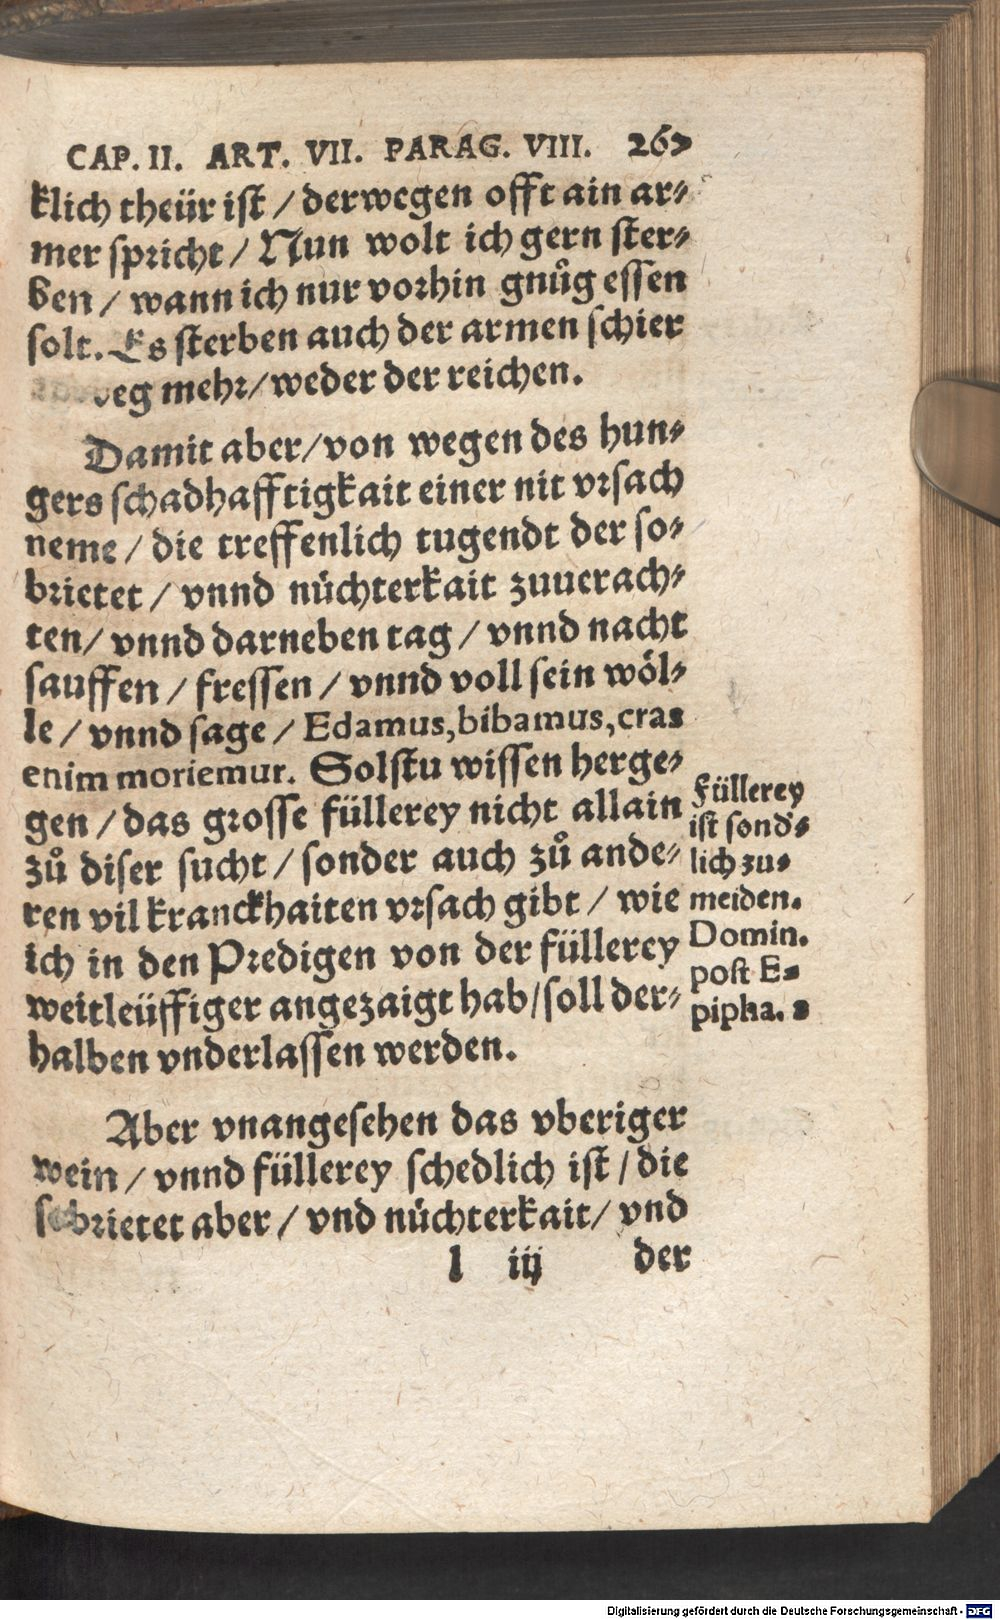 CAP. II. ART. VII. PARAG. VIII. 267
klich theür ist / derwegen offt ain ar-
mer spricht / Nun wolt ich gern ster-
ben / wann ich nur vorhin gnůg essen
solt. Es sterben auch der armen schier
mehr / weder der reichen.
Damit aber / von wegen des hun-
gers schadhafftigkait einer nit vrsach
neme / die treffenlich tugendt der so-
brietet / vnnd nüchterkait zuuerach-
ten / vnnd darneben tag / vnnd nacht
sauffen / fressen / vnnd voll sein wöl-
le / vnnd sage / Edamus, bibamus, cras
enim moriemur. Solstu wissen herge-
gen / das grosse füllerey nicht allain
zů diser sucht / sonder auch zů ande-
ren vil kranckhaiten vrsach gibt / wie
ich in den Predigen von der füllerey
weitleüffiger angezaigt hab / soll der-
halben vnderlassen werden.
Füllerey
ist sond's
lich zu-
meiden.
Domin.
post E-
pipha. 2
Aber vnangesehen das vberiger
wein / vnnd füllerey schedlich ist / die
sobrietet aber / vnd nüchterkait / vnd
l iij der
Digitalisierung gefördert durch die Deutsche Forschungsgemeinschaft - DFG